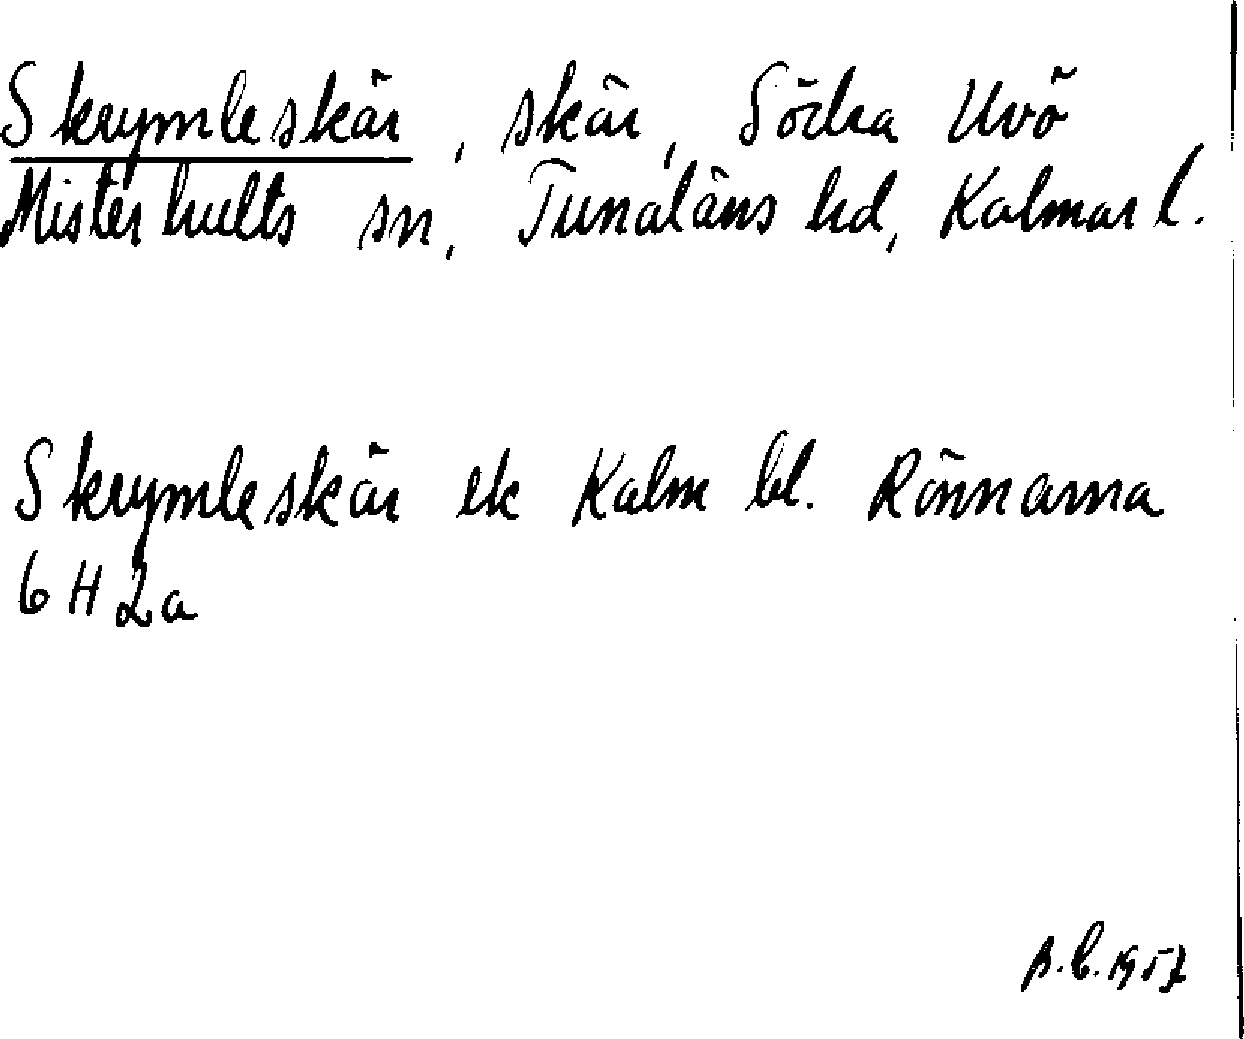 Skrymleskär, skär, Södra Uvö
Misterhults sn, Tunaläns hd, Kalmar l.
Skrymleskär ek Kalm bl. Rönnarna
6 H 2a
B.C. 1957